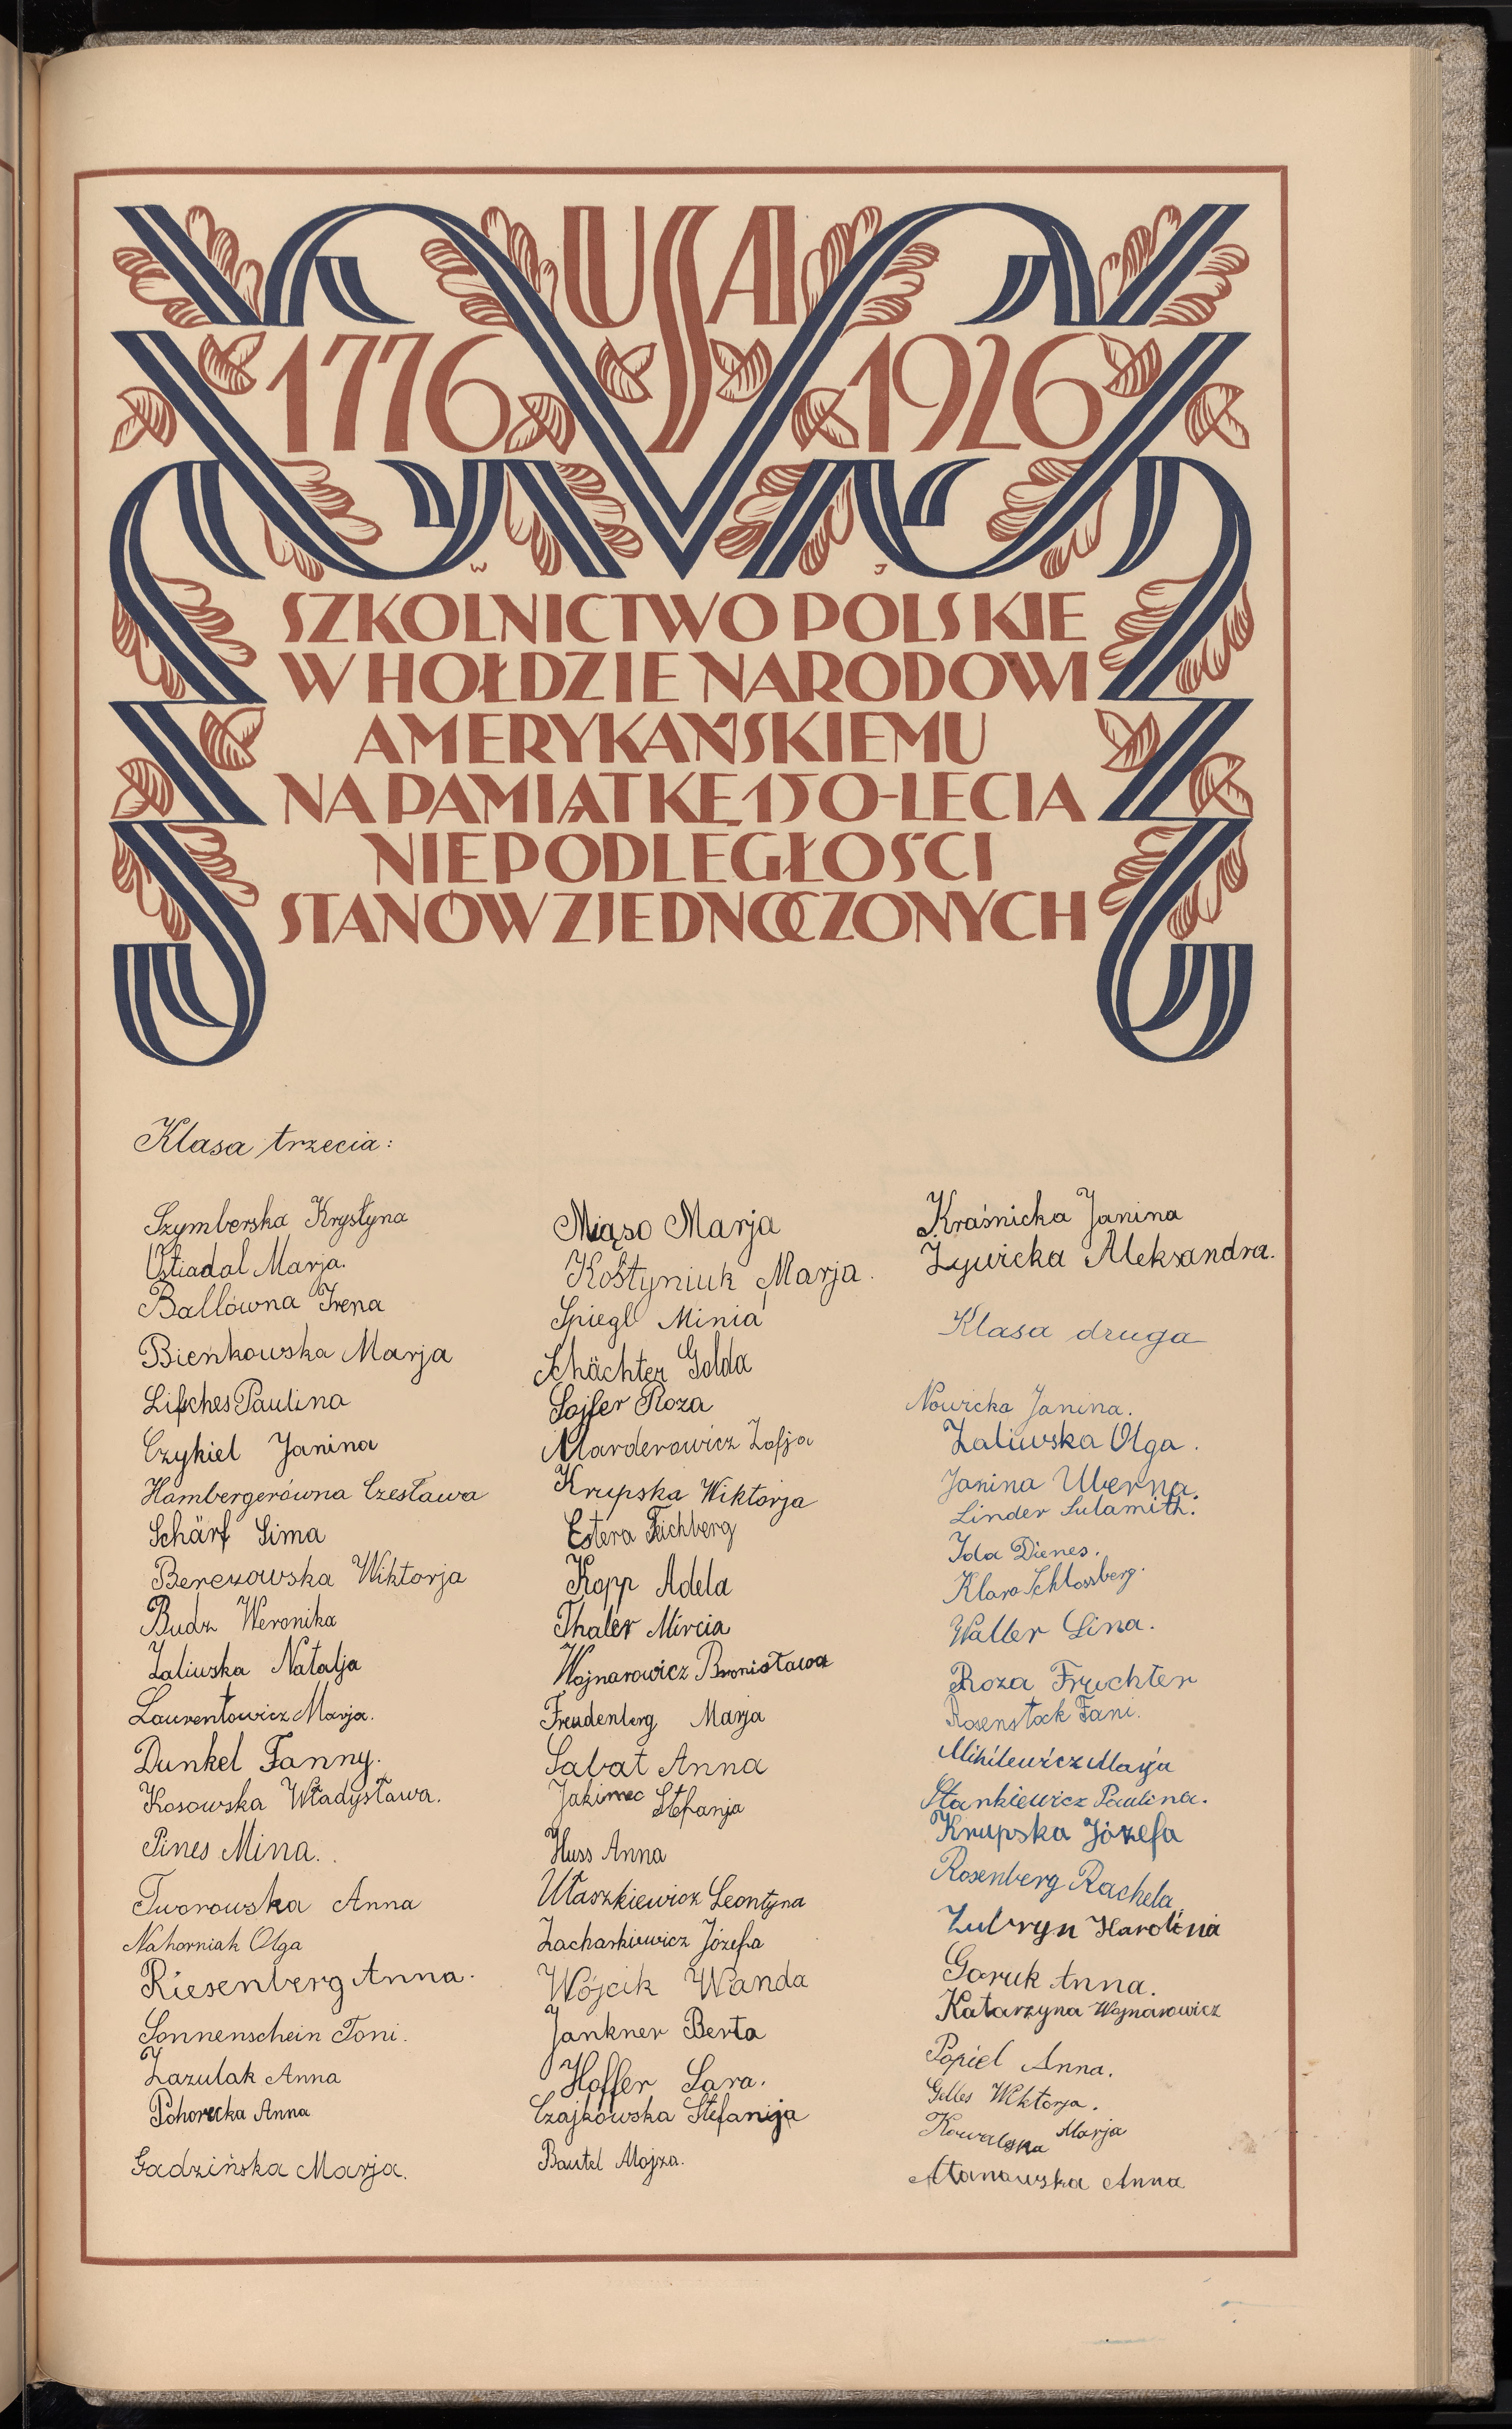 USA
1776 1926
W J
SZKOLNICTWO POLSKIE
W HOŁDZIE NARODOWI
AMERYKAŃSKIEMU
NA PAMIĄTKĘ 150-LECIA
NIEPODLEGŁOŚCI
STANÓW ZJEDNOCZONYCH
Klasa trzecia:
Szymberska Krystyna
Ustiadal Marja.
Ballówna Irena
Bieńkowska Marja
Lifsches Paulina
Czykiel Janina
Hambergerówna Czesława
Schärf Sima
Berezowska Wiktorja
Budz Weronika
Zaliwska Natalja
Laurentowicz Marja.
Dunkel Fanny.
Kosowska Władysława.
Pines Mina.
Tworowska Anna
Nahorniak Olga
Riesenberg Anna.
Sonnenschein Toni.
Zazulak Anna
Pohorecka Anna
Gadzińska Marja.
Miąso Marja
Kostyniuk Marja.
Spiegl Minia
Schächter Golda
Sojfer Roza
Marderowicz Zofja
Krupska Wiktorja
Estera Feichberg
Kopp Adela
Thaler Mircia
Wojnarowicz Bronisława
Freudenberg Marja
Sabat Anna
Jakimec Stefanja
Huss Anna
Utaszkiewicz Leontyna
Zacharkiewicz Józefa
Wójcik Wanda
Jankner Berta
Hoffer Sara.
Czajkowska Stefanja
Bautel Mojza.
Kraśnicka Janina
Żywicka Aleksandra.
Klasa druga
Nowicka Janina.
Zaliwska Olga.
Janina Uberna.
Linder Sulamith.
Ida Dienes.
Klara Schlossberg.
Waller Lina.
Roza Fruchter
Rosenstock Fani.
Mihilewicz Marja
Stankiewicz Paulina.
Krupska Józefa
Rosenberg Rachela
Zubryn Karolina
Goruk Anna.
Katarzyna Wojnarowicz
Popiel Anna.
Gelles Wiktorja.
Kowalska Marja
Atanowska Anna